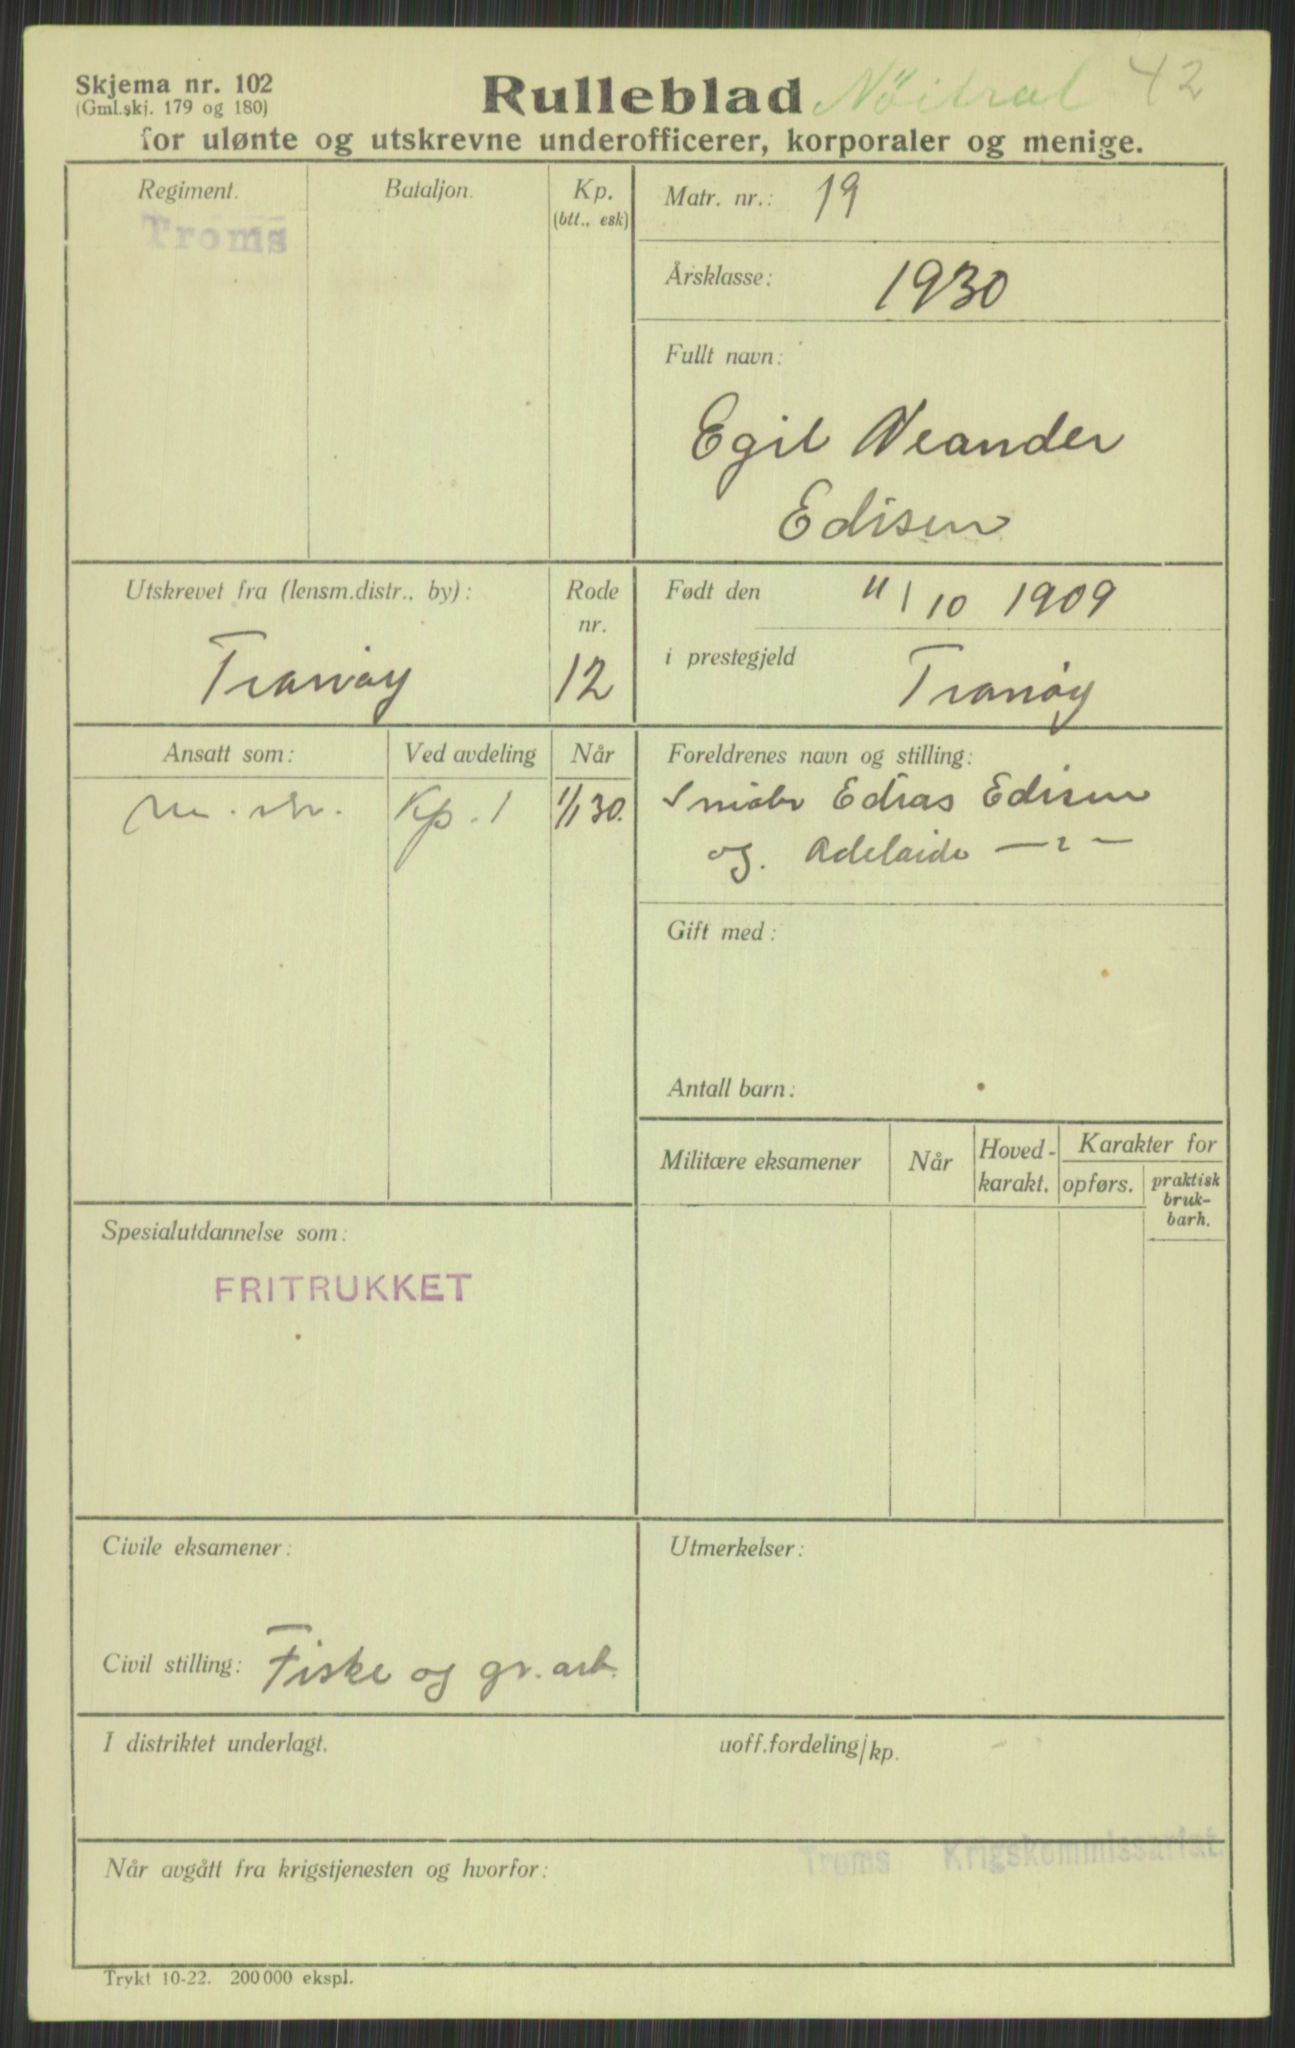 Skjema nr. 102
(Gml.skj. 179 og 180)
Rulleblad Nöitral 42
for ulønte og utskrevne underofficerer, korporaler og menige.
Regiment. Bataljon. Kp.
(btt., esk)
Troms
Matr. nr.: 19
Årsklasse: 1930
Fullt navn:
Egil Neander
Edisen
Utskrevet fra (lensm.distr., by): Rode
nr.
Tranöy 12
Født den 11/10 1909
i prestegjeld Tranöy
Ansatt som: Ved avdeling Når
Kp. 1 1/1 30.
Foreldrenes navn og stilling:
Edias Edisen
og. Adelaide —„—
Gift med:
Antall barn:
Militære eksamener Når Hoved-
karakt. Karakter for
opførs. praktisk
bruk-
barh.
Spesialutdannelse som:
FRITRUKKET
Civile eksamener:
Utmerkelser:
Civil stilling: Fiske og gr. arb.
I distriktet underlagt. uoff.fordeling/kp.
Troms Krigskommissariat
Når avgått fra krigstjenesten og hvorfor:
Trykt 10-22. 200 000 ekspl.